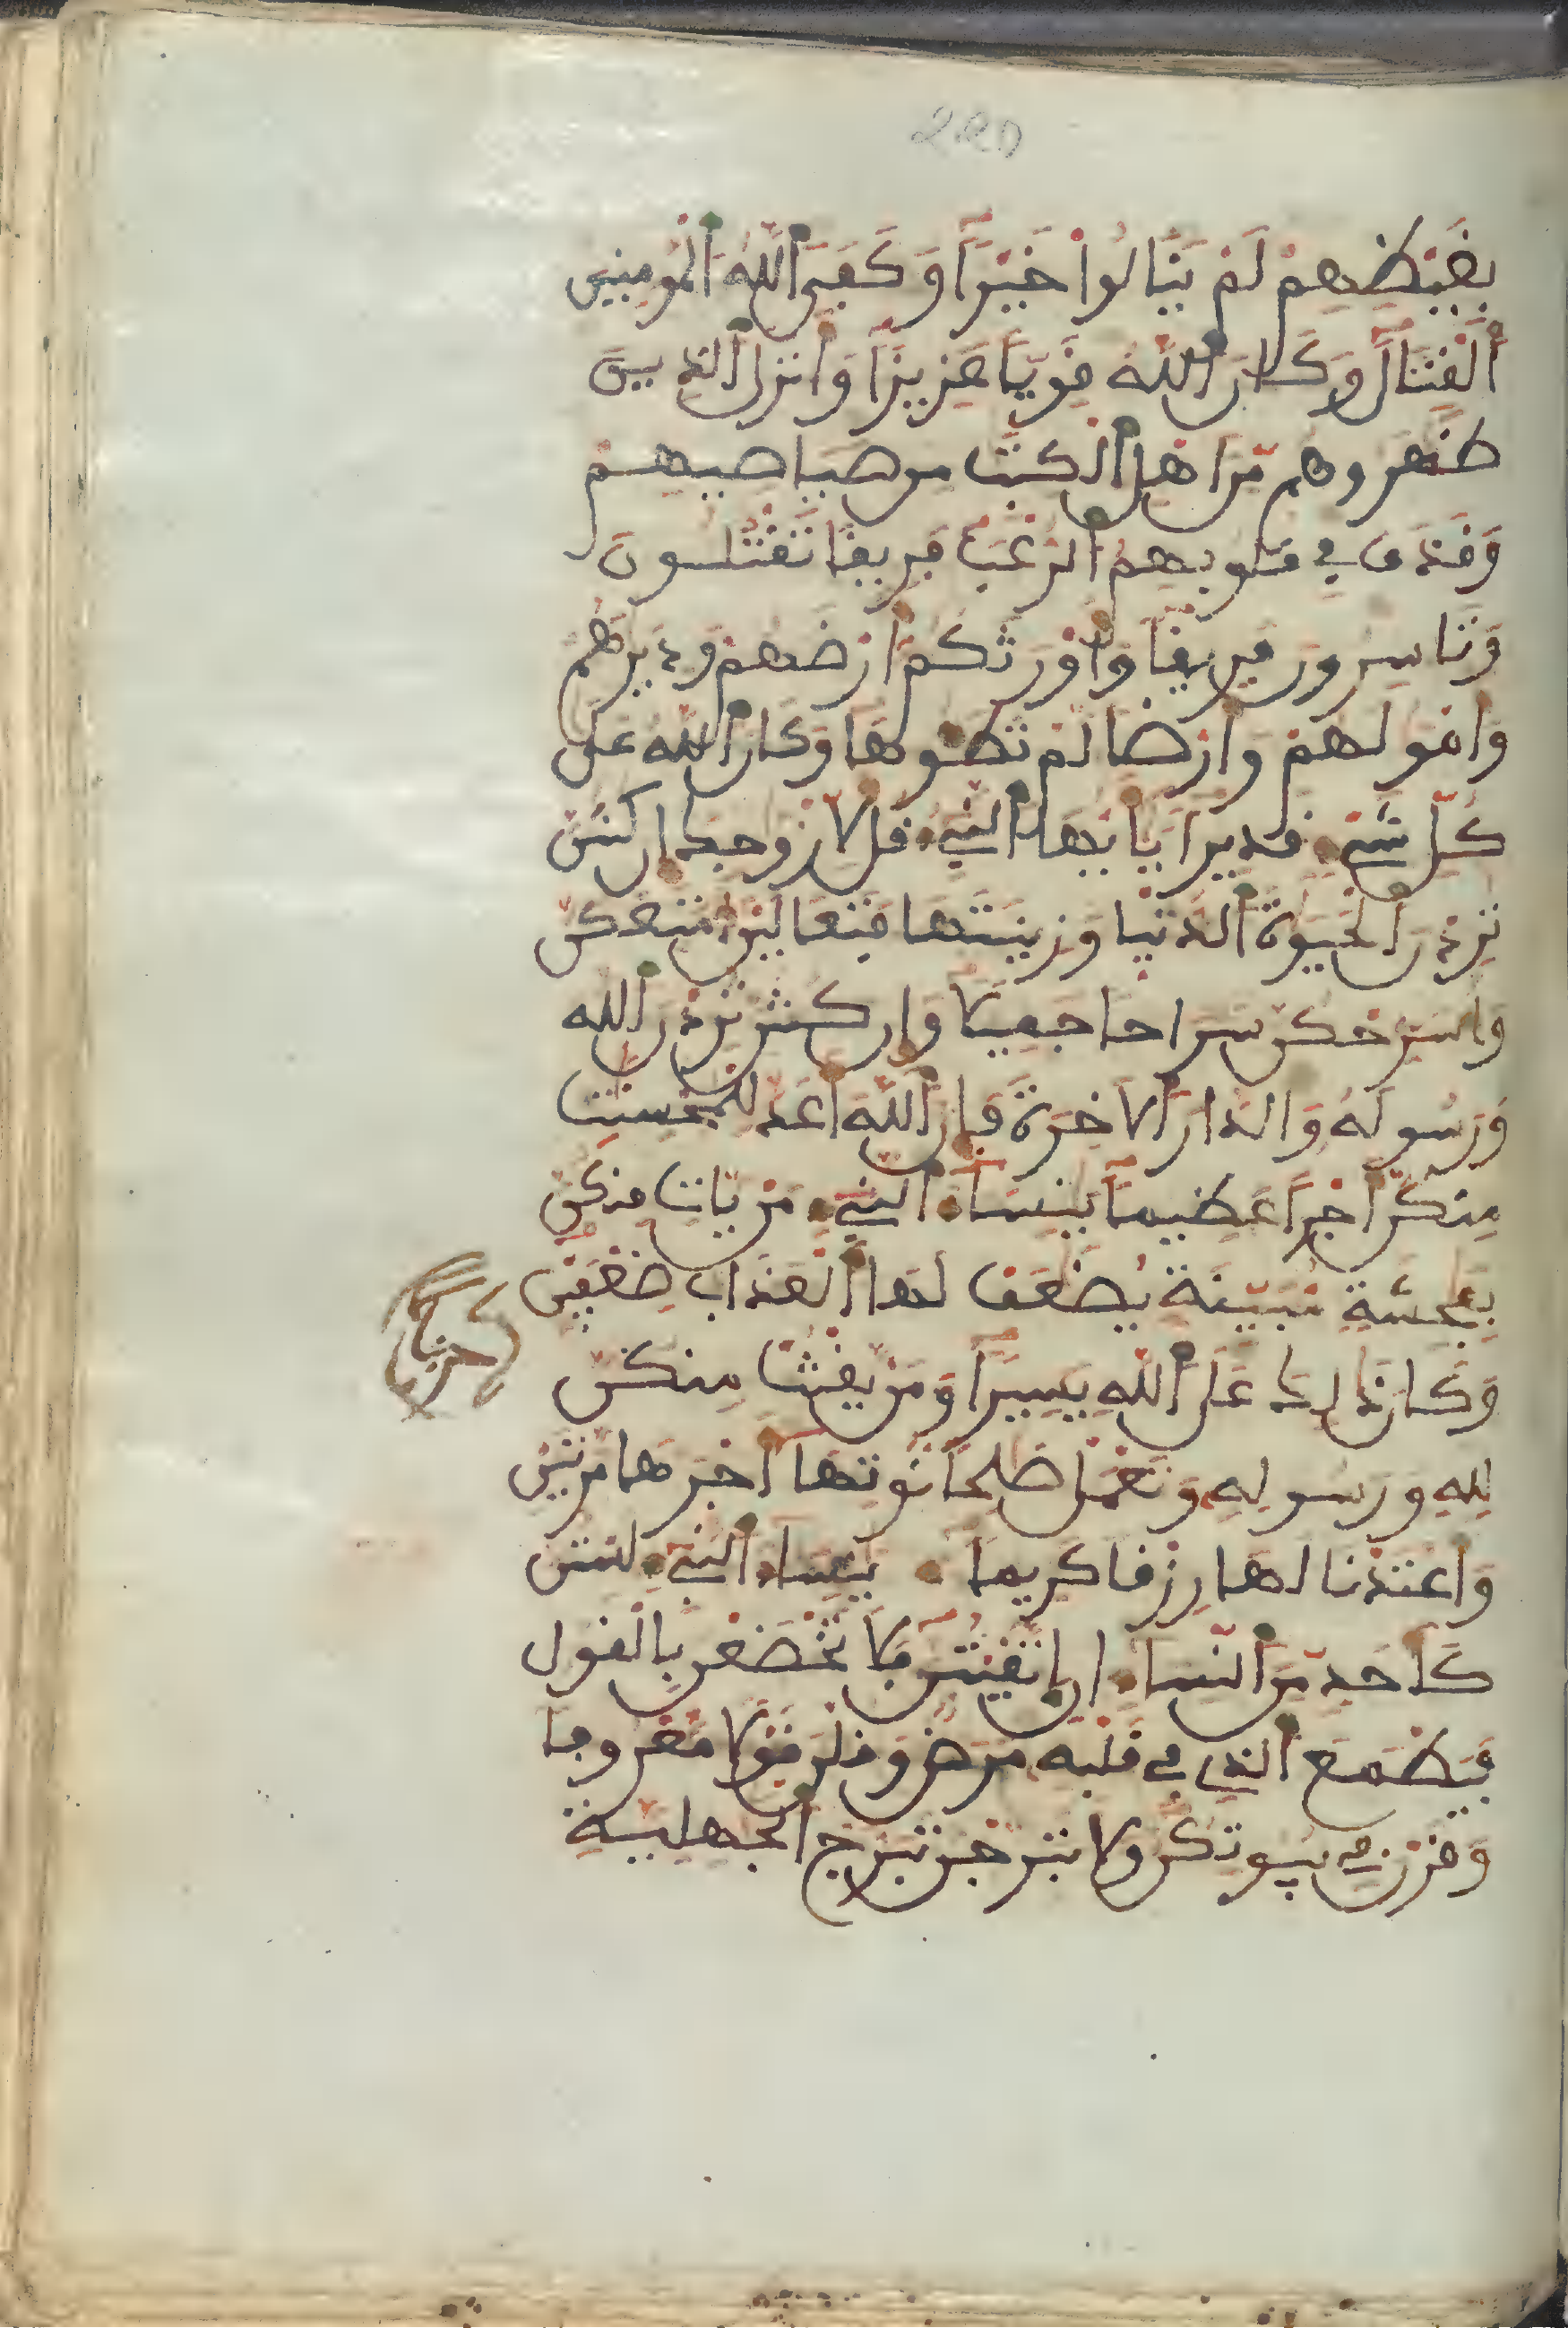 220
بِغَيْظِهِمْ لَمْ يَنَالُواْ خَيْراً وَكَفَى اَللَّهُ اُلْمُومِنِينَ
اَلْقِتَالَ وَكَانَ اَللَّهُ قَوِيّاً عَزِيزاً وَأَنزَلَ اَلذِينَ
ظَهَرُوهُم مِّنَ اَهْلِ اِلْكِتَٰبِ مِن صَيَاصِيهِمْ
وَقَذَفَ فِے قُلُوبِهِمُ اُلرُّعْبَ فَرِيقاً تَقْتُلُونَ
وَتَاسِرُونَ فَرِيقاً وَأَوْرَثَكُمْ أَرْضَهُمْ وَدِيَٰرَهُمْ
وَأَمْوَٰلَهُمْ وَأَرْضاً لَّمْ تَطَـُٔوهَا وَكَانَ اَللَّهُ عَلَىٰ
كُلِّ شَےْءٍ قَدِيراً يَٰأَيُّهَا اَلنَّبِےءُ قُل لِّأَزْوَٰجِكَ إِن كُنتُنَّ
تُرِدْنَ اَلْحَيَوٰةَ اَلدُّنْيَا وَزِينَتَهَا فَتَعَالَيْنَ أُمَتِّعْكُنَّ
وَأُسَرِّحْكُنَّ سَرَاحاً جَمِيلاً وَإِن كُنتُنَّ تُرِدْنَ اَللَّهَ
وَرَسُولَهُ وَالدَّارَ اَلَاخِرَةَ فَإِنَّ اَللَّهَ أَعَدَّ لِلْمُحْسِنَٰتِ
مِنكُنَّ أَجْراً عَظِيماً يَٰنِسَاءَ اَلنَّبِےءِ مَنْ يَّاتِ مِنكُنَّ
بِفَٰحِشَةٍ مُّبَيِّنَةٍ يُضَٰعَفْ لَهَا اَلْعَذَابُ ضِعْفَيْنِ
وَكَانَ ذَٰلِكَ عَلَى اَللَّهِ يَسِيراً وَمَنْ يَّقْنُتْ مِنكُنَّ
حزب
لِلهِ وَرَسُولِهِ وَتَعْمَلْ صَٰلِحاً نُّوتِهَا أَجْرَهَا مَرَّتَيْنِ
وَأَعْتَدْنَا لَهَا رِزْقاً كَرِيماً يَٰنِسَاءَ اَلنَّبِےءِ لَسْتُنَّ
كَأَحَدٍ مِّنَ اَلنِّسَاءِ إِنِ اِتَّقَيْتُنَّ فَلَا تَخْضَعْنَ بِالْقَوْلِ
فَيَطْمَعَ اَلذِے فِے قَلْبِهِ مَرَضٌ وَقُلْنَ قَوْلاً مَّعْرُوفاً
وَقَرْنَ فِے بُيُوتِكُنَّ وَلَا تَبَرَّجْنَ تَبَرُّجَ اَلْجَٰهِلِيَّةِ